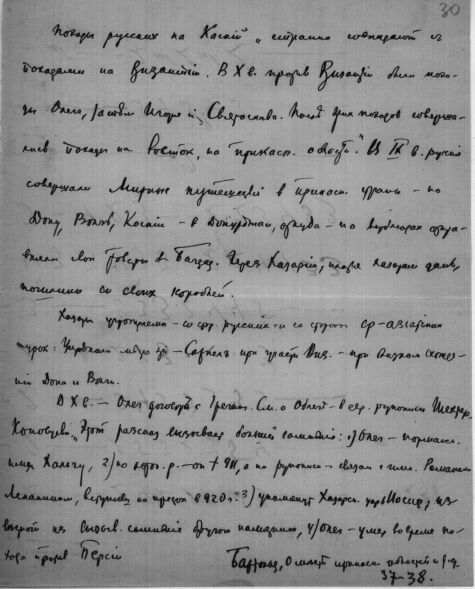 30
Походы русских на Каспий „странно совпадают с
походами на Византию. В X в. против Византии были похо-
ды Олега, Игоря и Святослава. После этих походов соверша-
лись походы на Восток, на прикасп. области". В IX в. русские
совершали мирные путешествия в прикасп. страны – по
Дону, Волге, Каспию – в Джурджан, откуда – на верблюдах отпра-
вляли свои товары в Багдад. Через Хазарию, платя хазарам дань,
пошлины со своих кораблей.
Хазары укреплены – со стор. русских и со стороны ср-азиатских
турок: – Саркел при участии Виз. – при близком схожде-
нии Дона и Волги.
В X в. – Олег договор с Грецией. См. о Олеге – в евр. рукописи Шехтера,
Коковцов. „Этот рассказ вызывает большие сомнения: 1) Олег – норманск.
имя Хальгу, 2) по летоп. р. – он † 911, а по рукописи – связан с имп. Романом
Лекапином, вступив. на престол в 920 г. 3) упоминут Хазарск. царь Иосиф; из
сомнения другого памятника, Олег – умер во время по-
хода против Персии
Бартольд, О прикасп. областей
37–38.